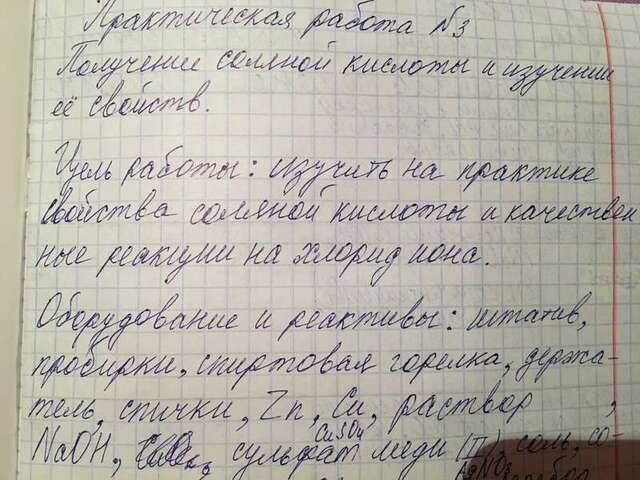 Практическая работа №3
Получение соляной кислоты и изучение
её свойств.
Цель работы: изучить на практике
свойства соляной кислоты и качествен
ные реакции на хлорид иона.
Оборудование и реактивы: штатив,
пробирки, спиртовая горелка, держа-
тель, спички, Zn, Cu, раствор
NaOH, сульфат меди (II), соль, со-